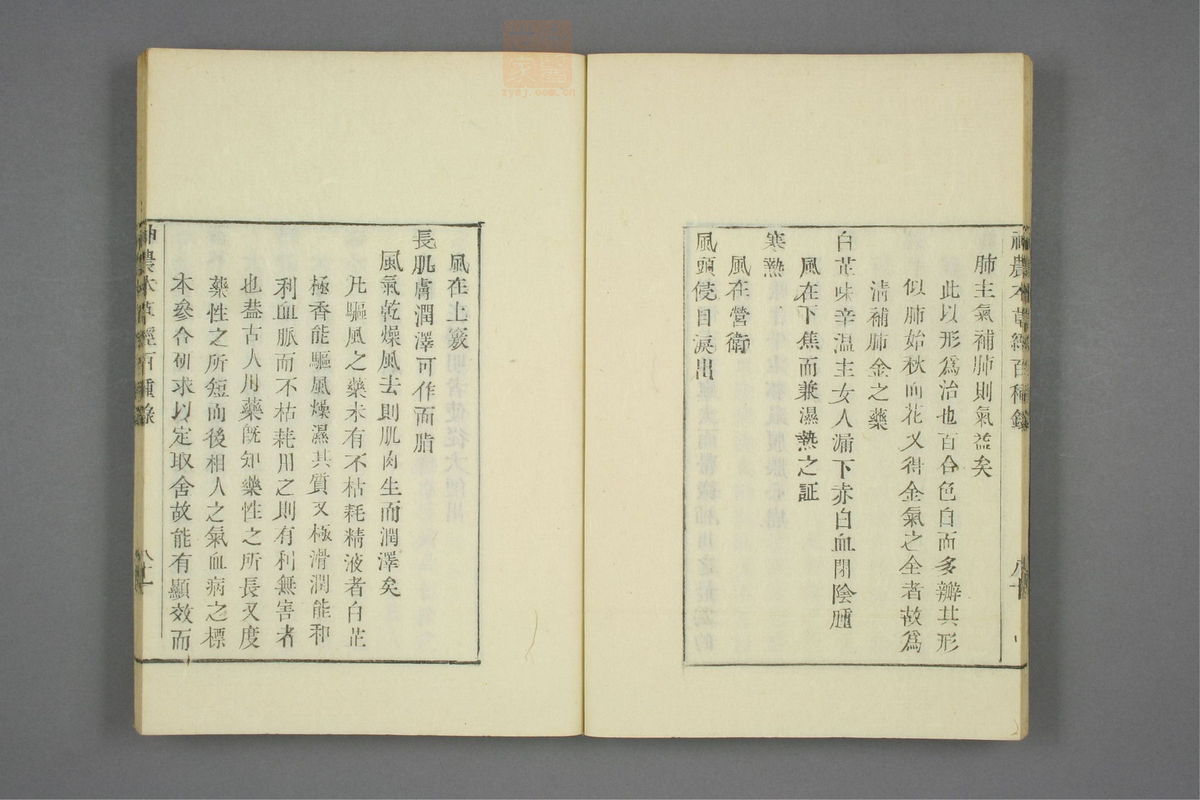 神農本草經百種錄
肺主氣補肺則氣益矣
此以形爲治也百合色白而多瓣其形
似肺始秋而花又得金氣之全者故爲
清補肺金之藥
白芷味辛温主女人漏下赤白血閉陰腫
風在下焦而兼濕熱之証
寒熱
風在營衛
風頭侵目淚出
八十
風在上竅
長肌膚潤澤可作面脂
風氣乾燥風去則肌肉生而潤澤矣
凡驅風之藥未有不枯耗精液者白芷
極香能驅風燥濕其質又極滑潤能和
利血脈而不枯耗用之則有利無害者
也葢古人用藥旣知藥性之所長又度
藥性之所短而後相人之氣血病之標
本參合研求以定取舍故能有顯效而
神農本草經百種錄
八十一
zysj.com.cn